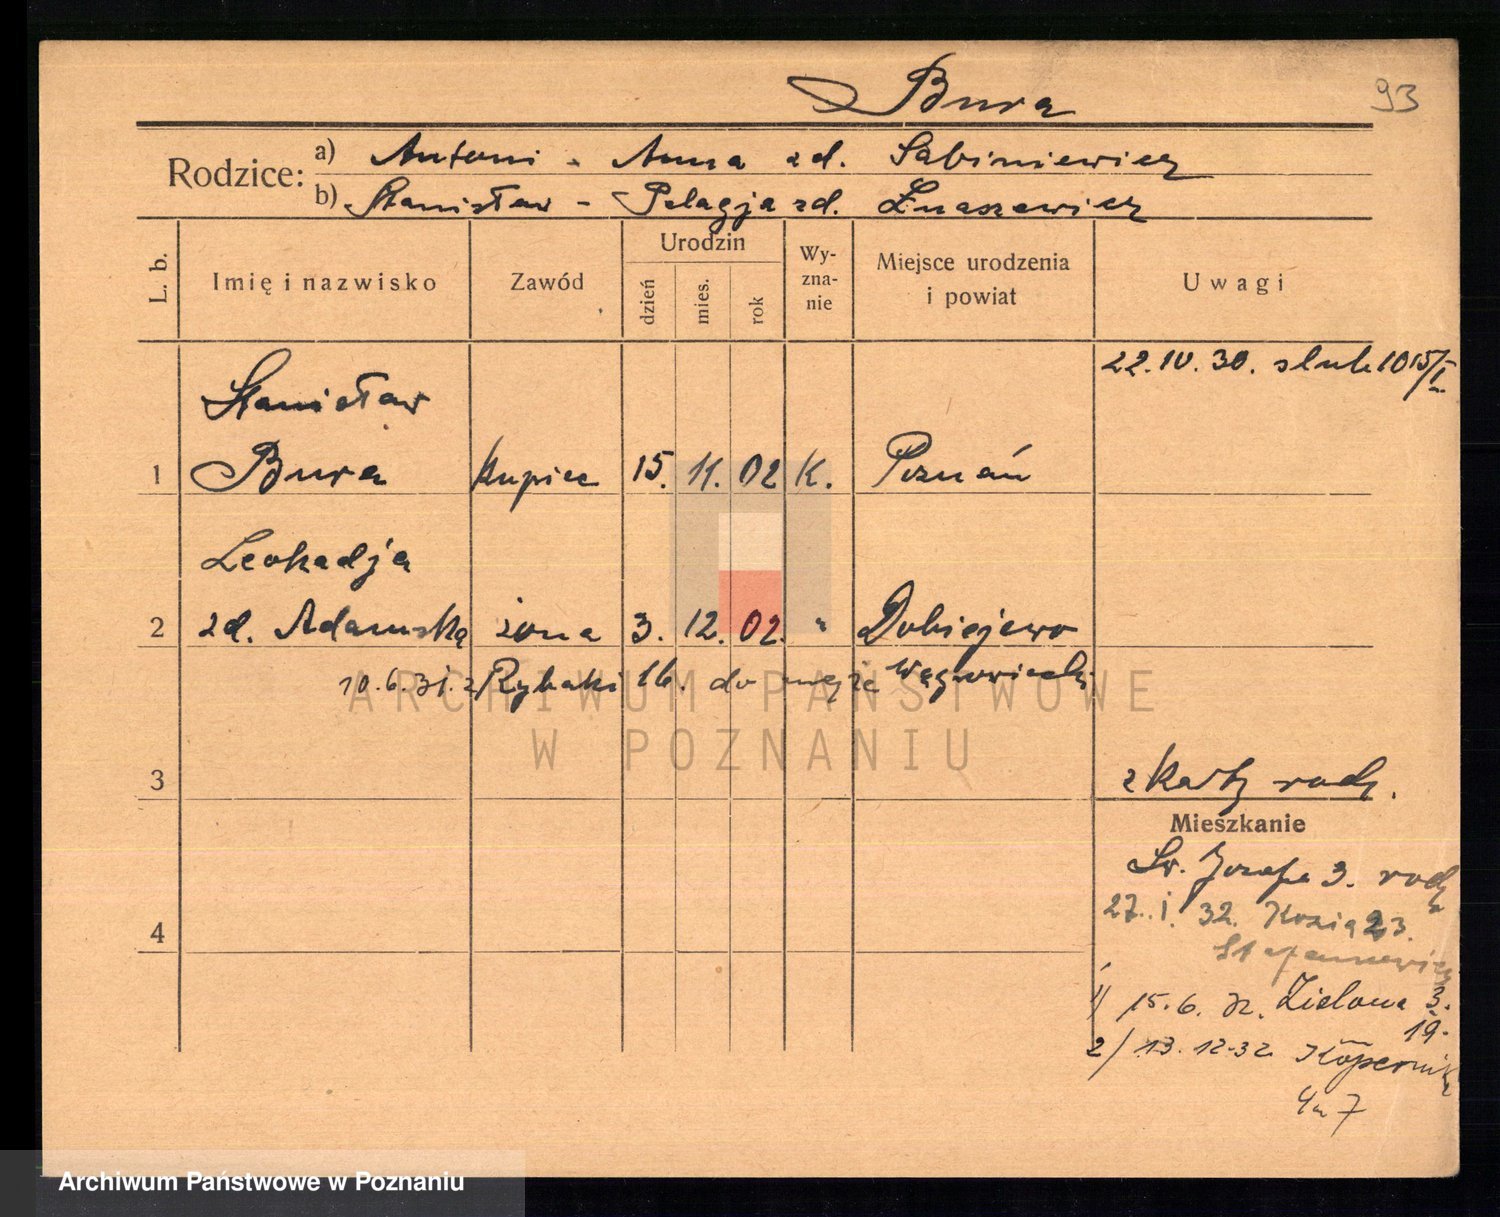 Bura
93
Rodzice:
a) Antoni - Anna zd. Sabiniewicz
b) Stanisław - Pelagja zd. Łuaszewicz
L. b.
Imię i nazwisko
Zawód
Urodzin
dzień
mies.
rok
Wy-
zna-
nie
Miejsce urodzenia
i powiat
Uwagi
22. IV. 30. slub 1015/I
Stanisław
1 Bura kupiec 15. 11. 02 K. Poznań
Leokadja
2 zd. Adamska żona 3. 12. 02. " Dobiejewo
10.6.31. z Rybaki 16. do męża Wągrowiecki
ARCHIWUM PAŃSTWOWE
W POZNANIU
3
z karty rodz.
Mieszkanie
Św. Józefa 3. rodz
27. I. 32. Kozia 23.
4
1/ 15.6. 32. Zielona 3.
19.
2/ 13. 12.32 Kopernika
4 m 7
Archiwum Państwowe w Poznaniu